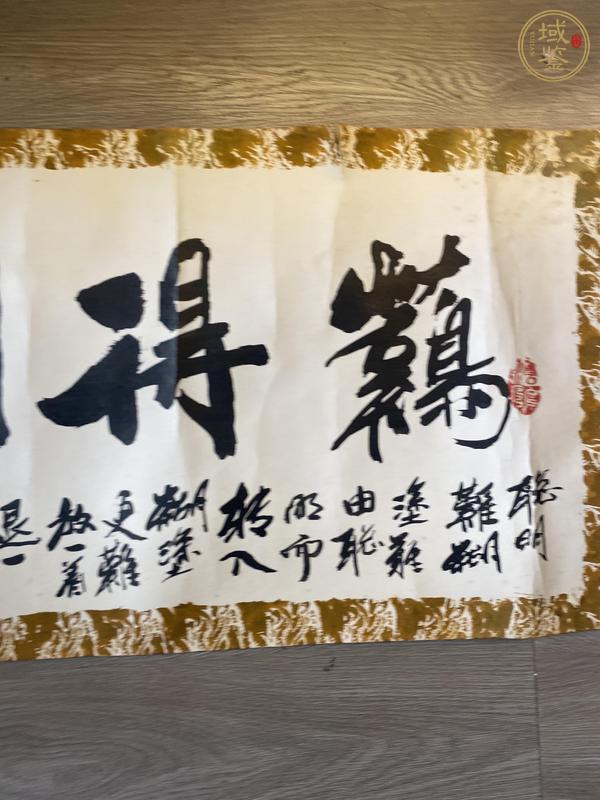 難得
聰明
難糊
塗難
由聰
明而
轉入
糊塗
更難
放一着
退一
域鉴